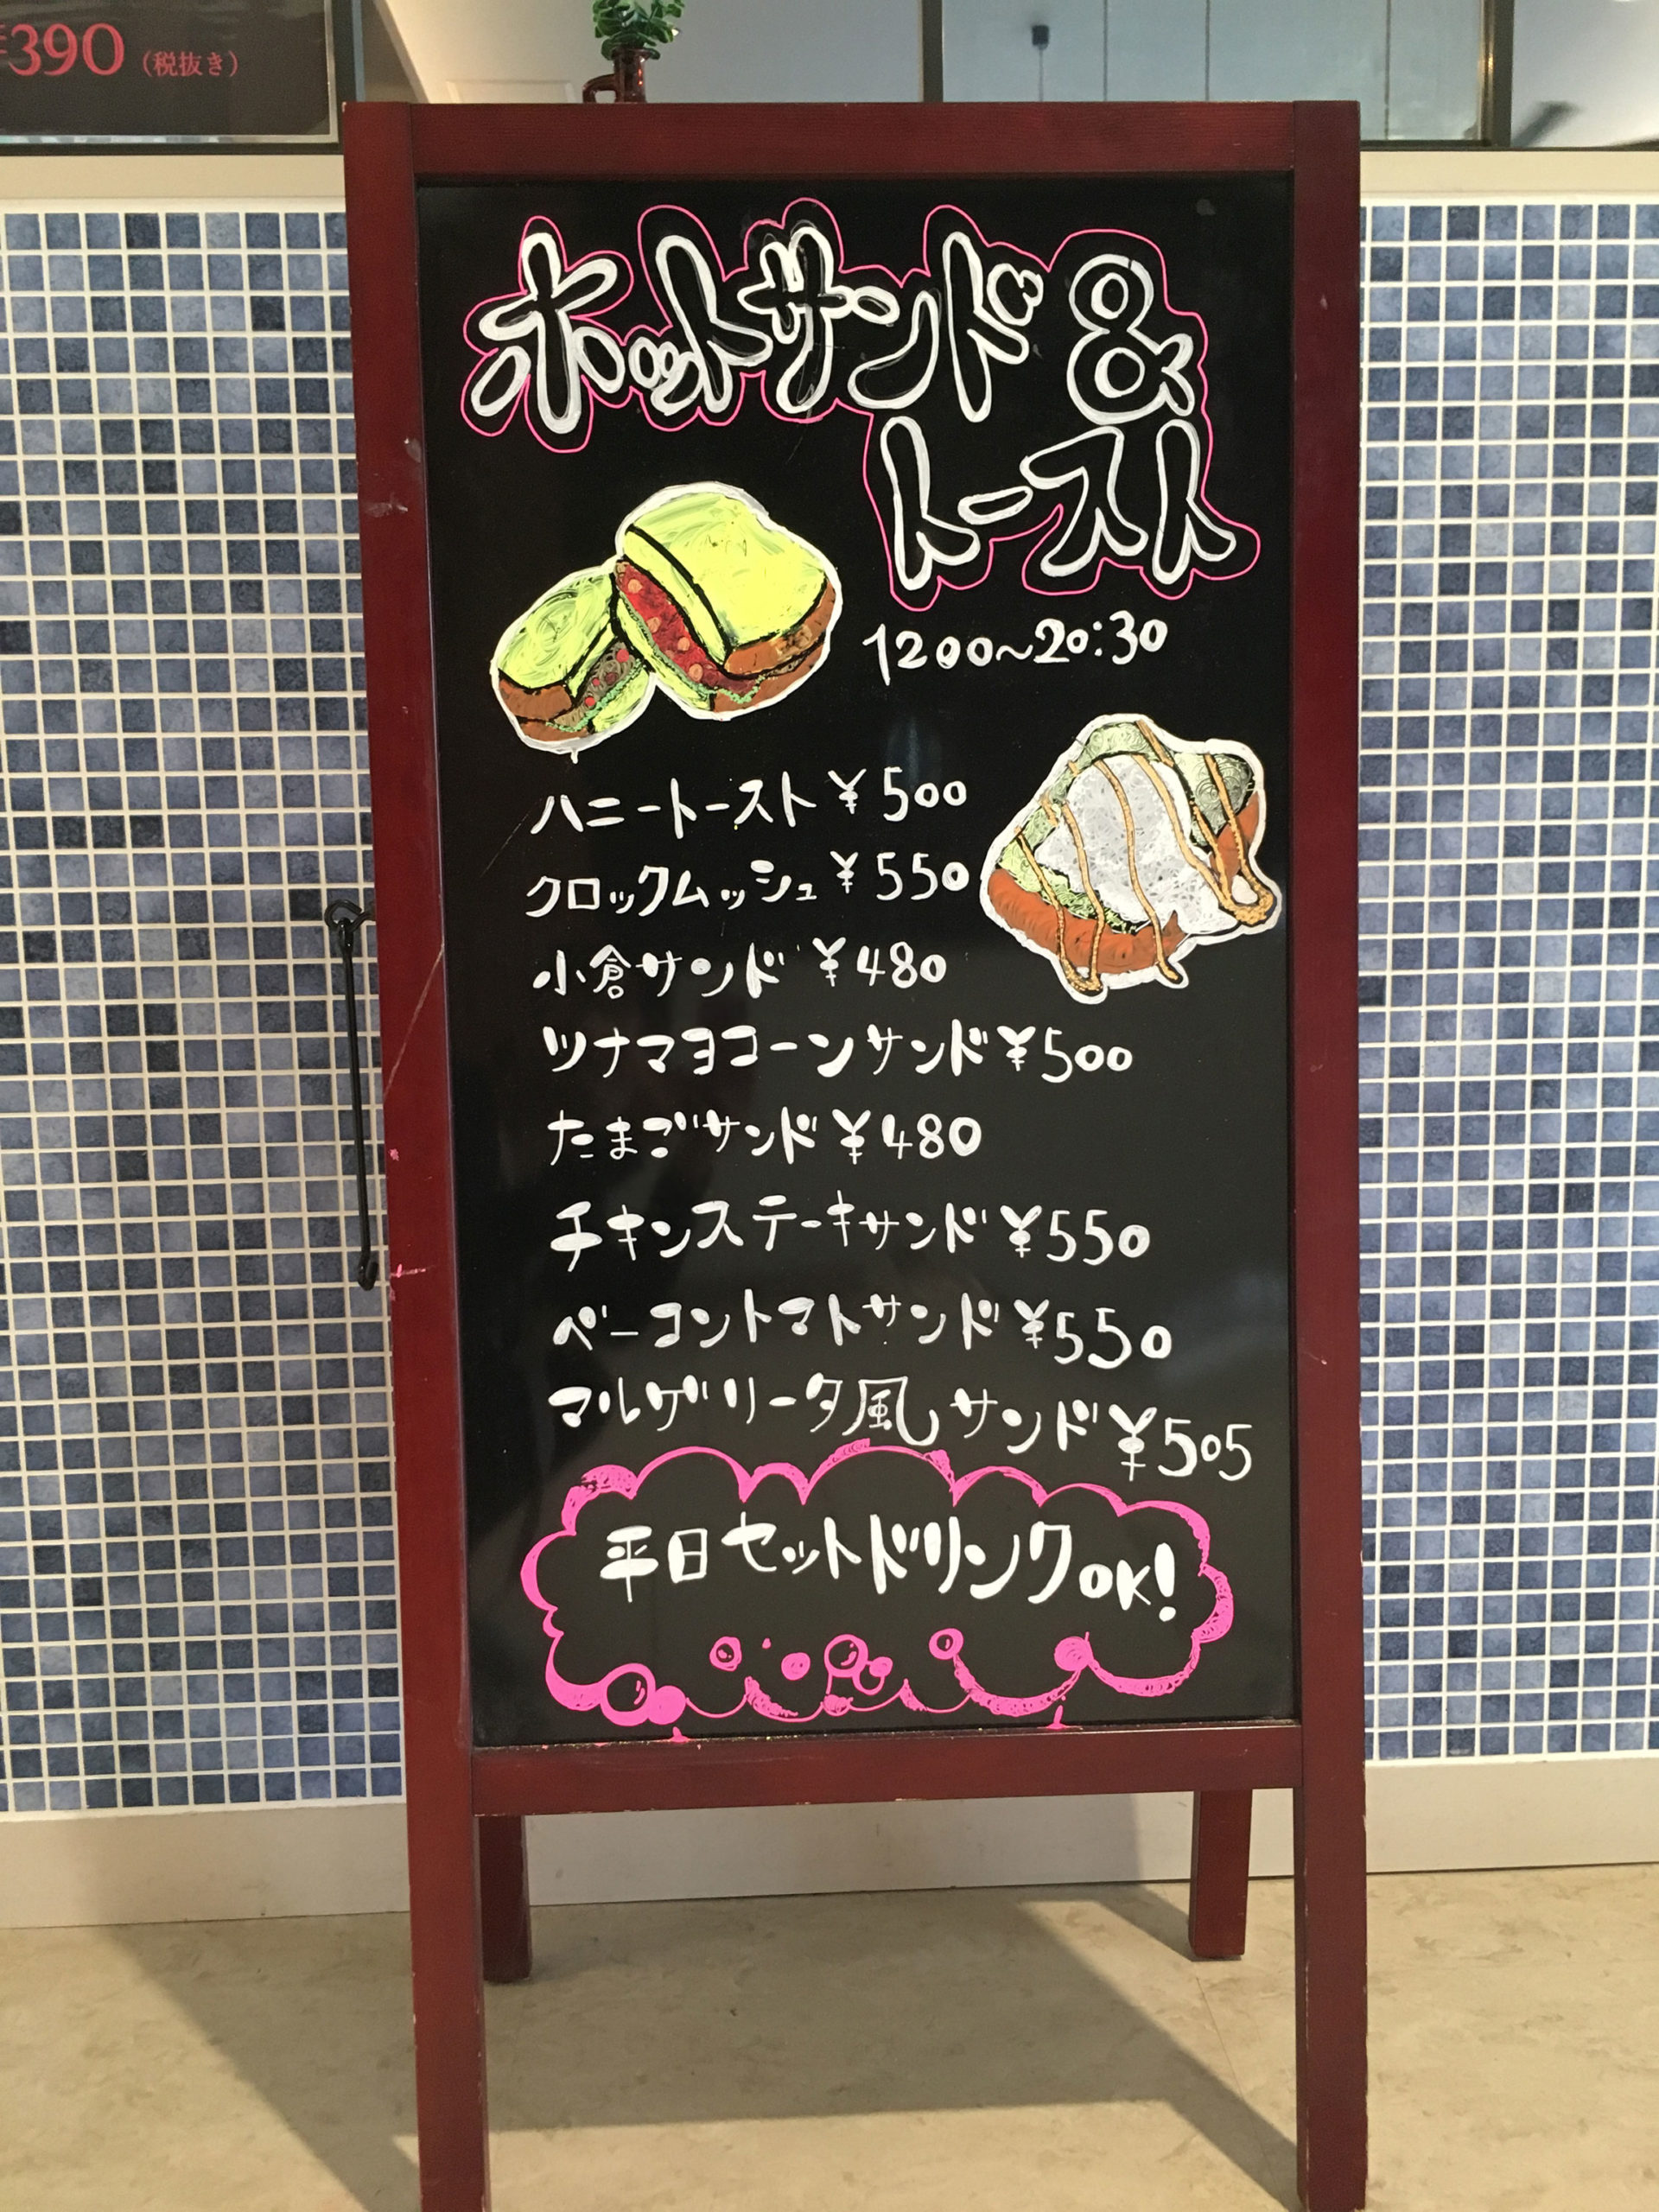 ¥390（税抜き）
ホットサンド&
トースト
1200~20:30
ハニートースト ¥500
クロックムッシュ ¥550
小倉サンド ¥480
ツナマヨコーンサンド ¥500
たまごサンド ¥480
チキンステーキサンド ¥550
ベーコントマトサンド ¥550
マルゲリータ風サンド ¥505
平日セットドリンクOK!